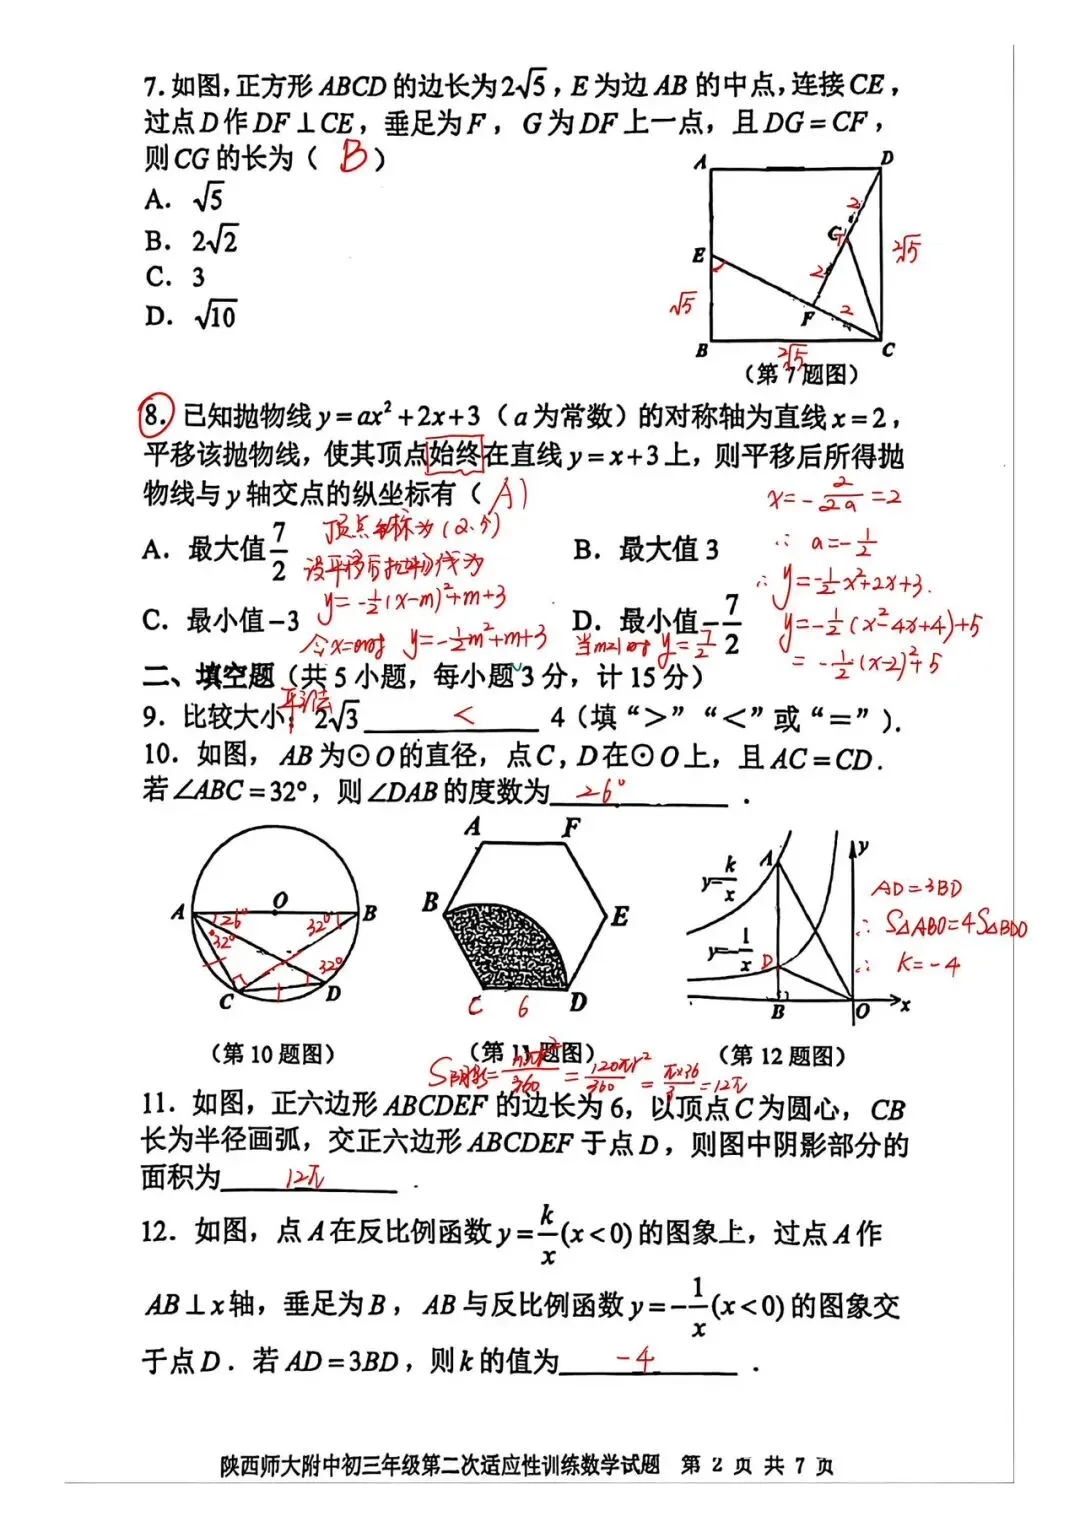 7.如图,正方形ABCD的边长为2√5,E为边AB的中点,连接CE,
过点D作DF⊥CE,垂足为F,G为DF上一点,且DG=CF,
则CG的长为( B )
A. √5
B. 2√2
C. 3
D. √10
A
D
E
G
F
B
C
2
2
2
√5
2√5
2√5
(第7题图)
8. 已知抛物线y=ax²+2x+3(a为常数)的对称轴为直线x=2,
平移该抛物线,使其顶点始终在直线y=x+3上,则平移后所得抛
物线与y轴交点的纵坐标有( A )
A. 最大值7/2
B. 最大值3
C. 最小值-3
D. 最小值-7/2
顶点坐标为(2,5)
设平移后抛物线为
y=-1/2(x-m)²+m+3
令x=0时 y=-1/2m²+m+3
当m=1时 y=7/2
x=-2/2a=2
∴ a=-1/2
∴ y=-1/2x²+2x+3.
y=-1/2(x²-4x+4)+5
=-1/2(x-2)²+5
二、填空题(共5小题,每小题3分,计15分)
平方法
9. 比较大小:2√3 < 4(填“>”“<”或“=”).
10. 如图,AB为⊙O的直径,点C,D在⊙O上,且AC=CD.
若∠ABC=32°,则∠DAB的度数为 26° .
A
O
B
C
D
26°
32°
32°
32°
(第10题图)
A
F
B
E
C
6
D
(第11题图)
S阴影=nπr²/360=120πr²/360=π×36/3=12π
y=k/x
A
y
y=-1/x
D
B
O
x
(第12题图)
AD=3BD
∴ S△ABO=4S△BDO
∴ k=-4
11. 如图,正六边形ABCDEF的边长为6,以顶点C为圆心,CB
长为半径画弧,交正六边形ABCDEF于点D,则图中阴影部分的
面积为 12π .
12. 如图,点A在反比例函数y=k/x(x<0)的图象上,过点A作
AB⊥x轴,垂足为B,AB与反比例函数y=-1/x(x<0)的图象交
于点D.若AD=3BD,则k的值为 -4 .
陕西师大附中初三年级第二次适应性训练数学试题 第 2 页 共 7 页